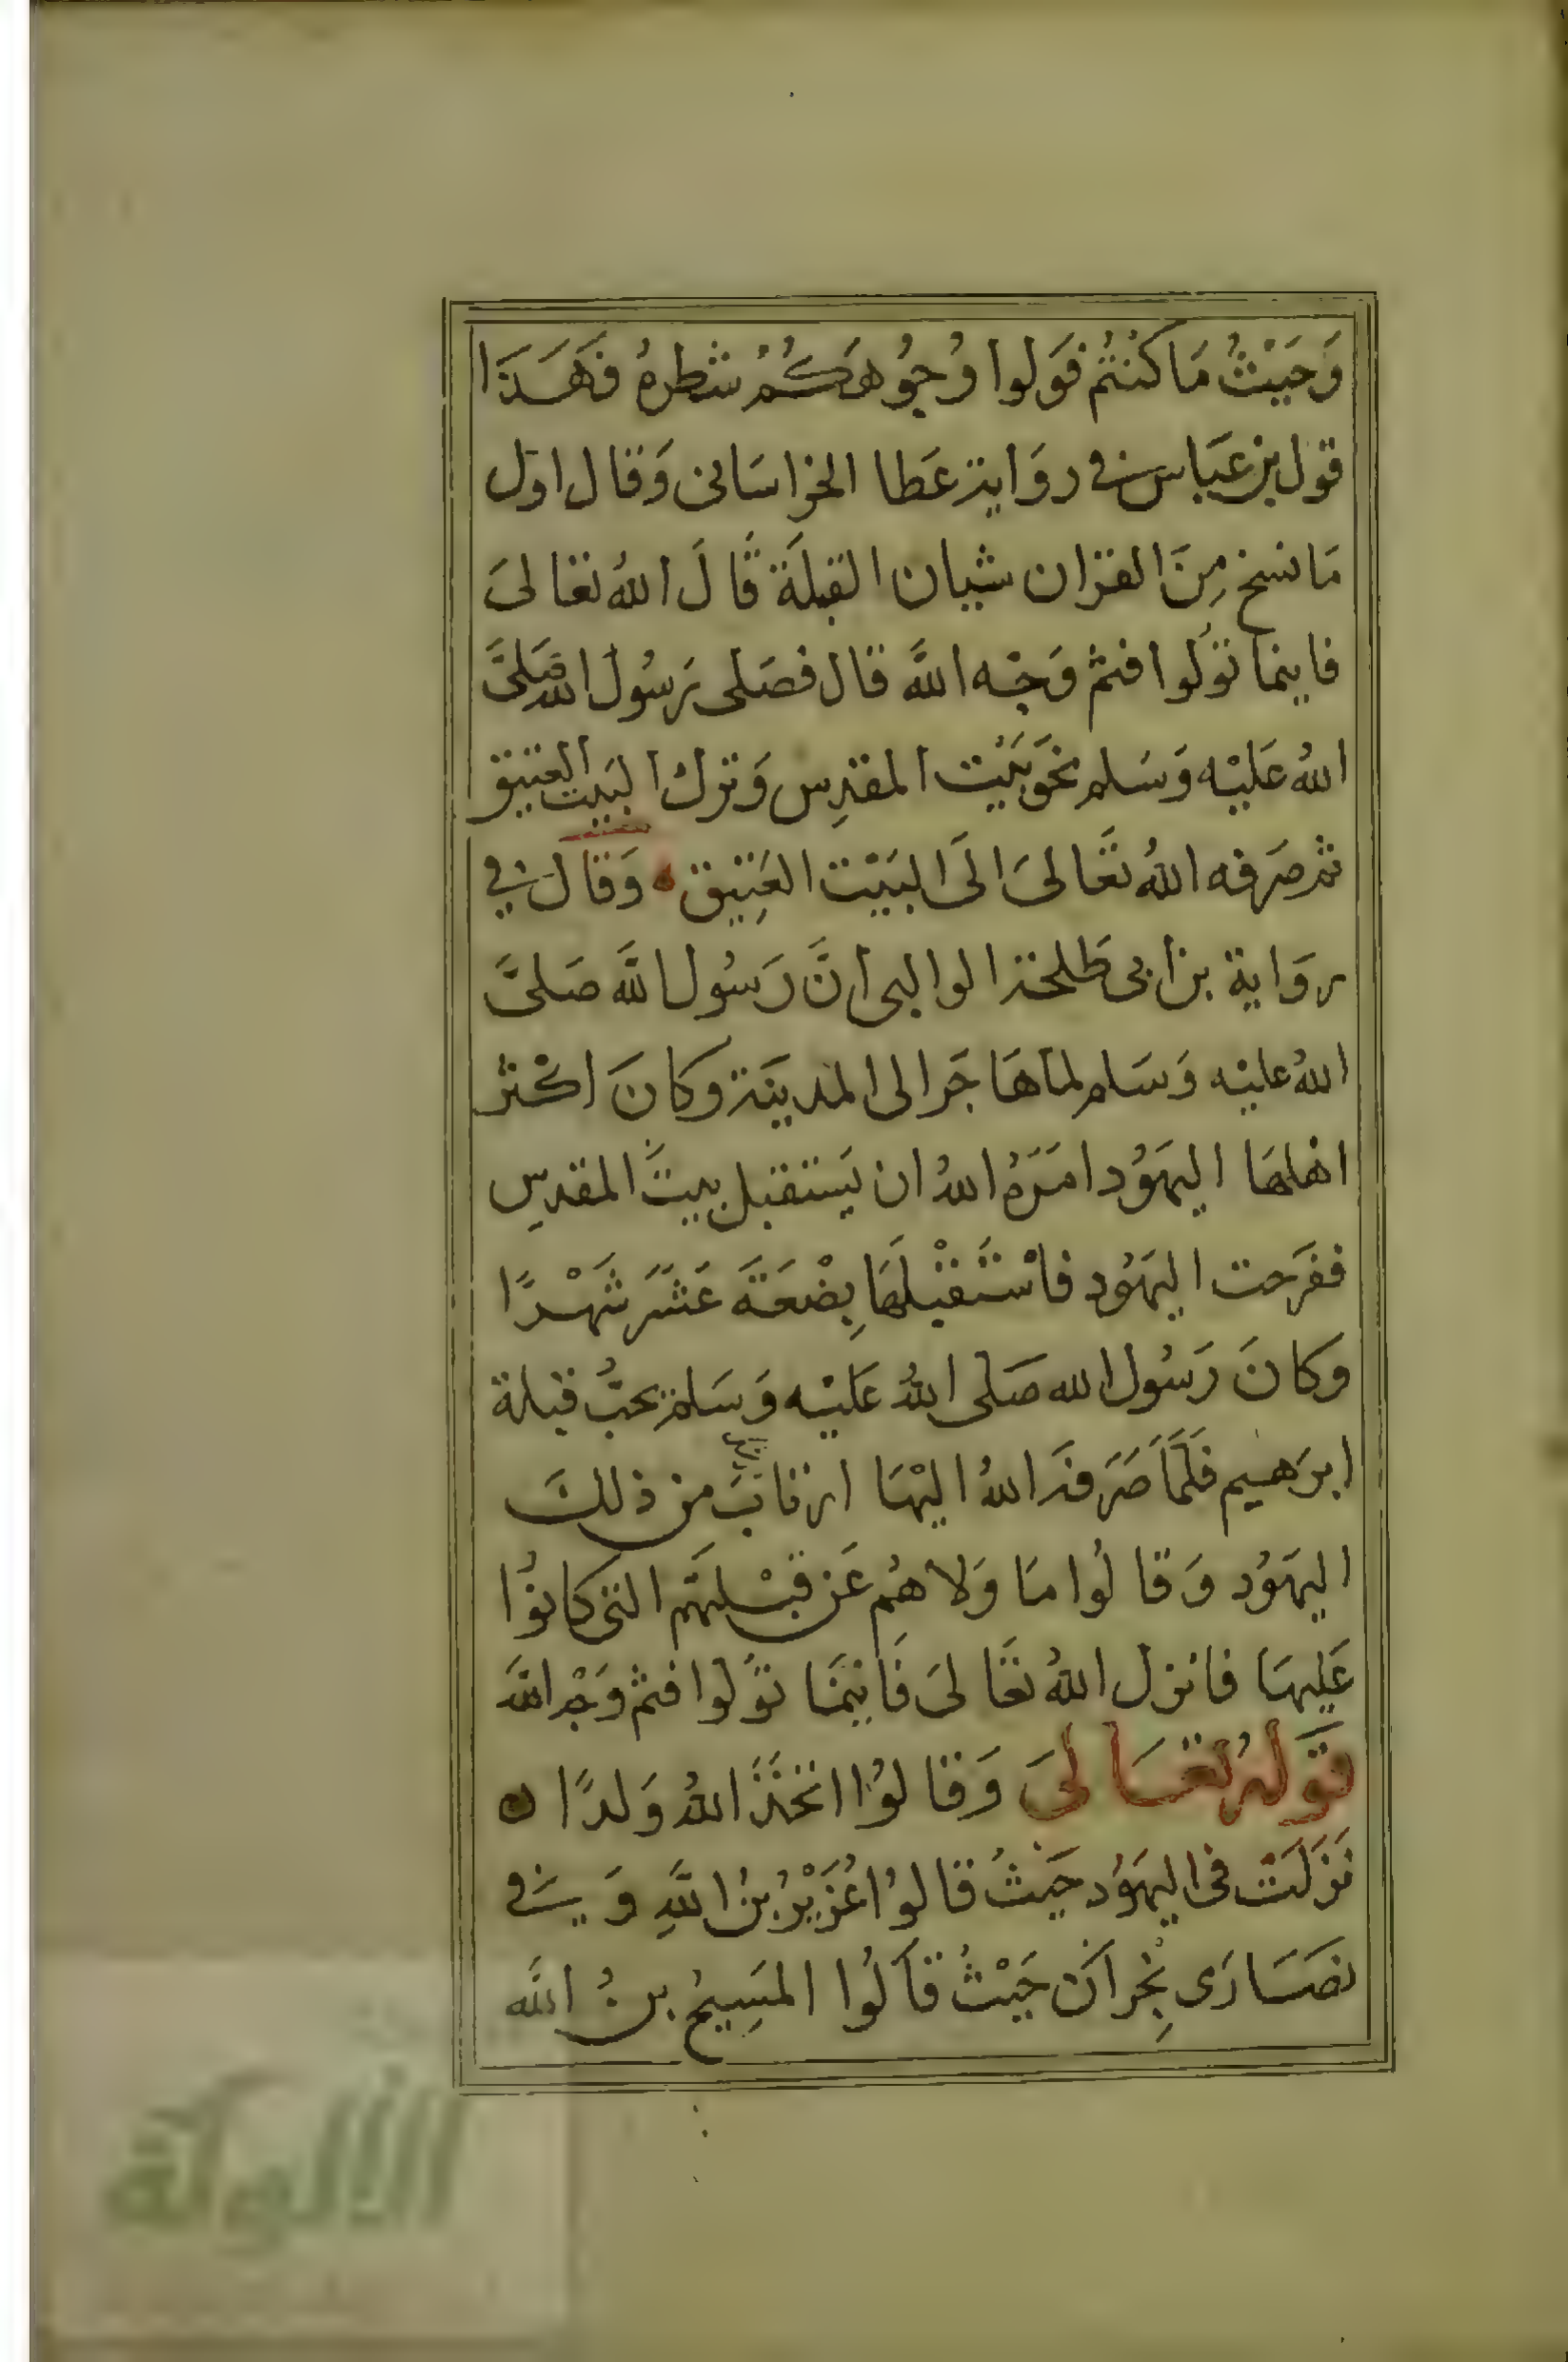 وَحَيْثُ مَا كُنْتُمْ فَوَلوا وُجُوُهَكُمْ شطرهُ فَهَذَا
قول بن عَبَاس في روَاية عَطا الخراسَانى وَقال اول
مَا نسخ مِنَ القران شيان القبلَة قَالَ اللهُ تعَالىَ
فاينما تُوَلوا فثم وَجْه اللَّه قال فصَلى رَسُول الله صَلىَّ
اللهُ عَليْه وَسَلم نحوَ بَيْت المقدِس وَترك البَيت العتيق
ثم صَرفه اللهُ تعَالىَ الَى البَيْت العَتِيق ۰ وَقال في
روَاية بن ابى طلحة الوالبى انَّ رَسُول اللَّه صَلىَّ
اللهُ عليْه وَسَلم لما هَاجَر الى المدينَة وكانَ اكثر
اهلهَا اليهَوُد امَرَهُ اللهُ ان يَستقبل بيتَ المقدسِ
ففرَحت اليهَوُد فاسْتَقْبَلَهَا بِضْعَةَ عَشَرَ شَهْرًا
وَكانَ رَسُول الله صَلى اللهُ عَليْه وَسَلم يحبُّ قبلة
ابرَهيم فَلَمَّا صَرَفهَ اللهُ اليْهَا ارتابَ من ذلكَ
اليهَوُد وَقالُوا مَا وَلاهُم عَن قبْلتهَم التى كانوُا
عَليهَا فانزل اللهُ تعَالىَ فَاَيْنَمَا توَلوا فثم وَجْه اللَّه
قَولهُ تعَالىَ وَقالوُا اتخَذَ اللهُ وَلدًا ۰
نَزَلَتْ فى اليهَوُد حَيْثُ قالوُا عُزَيْرُ بنُ اللَّهِ وَفي
نصَارَى نَجِرَانَ حَيْثُ قَالُوا المَسِيحُ بنُ اللَّه
الألوكة